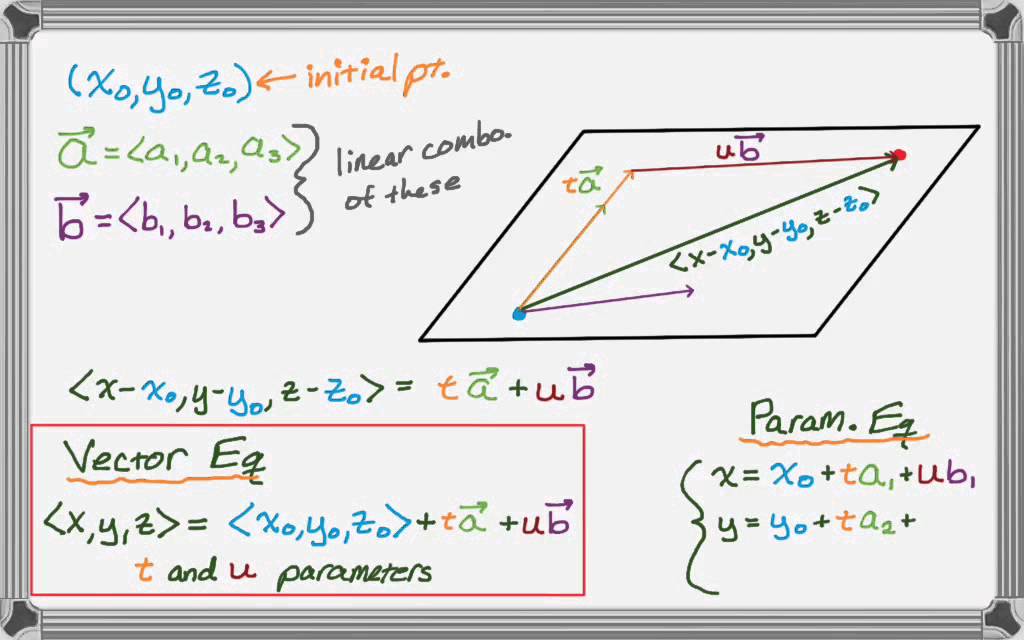 (x₀, y₀, z₀) ← initial pt.
a⃗ = <a₁, a₂, a₃>
b⃗ = <b₁, b₂, b₃>
linear combo.
of these
ta⃗
ub⃗
<x-x₀, y-y₀, z-z₀>
<x-x₀, y-y₀, z-z₀> = ta⃗ + ub⃗
Vector Eq
<x, y, z> = <x₀, y₀, z₀> + ta⃗ + ub⃗
t and u parameters
Param. Eq
x = x₀ + ta₁ + ub₁
y = y₀ + ta₂ +